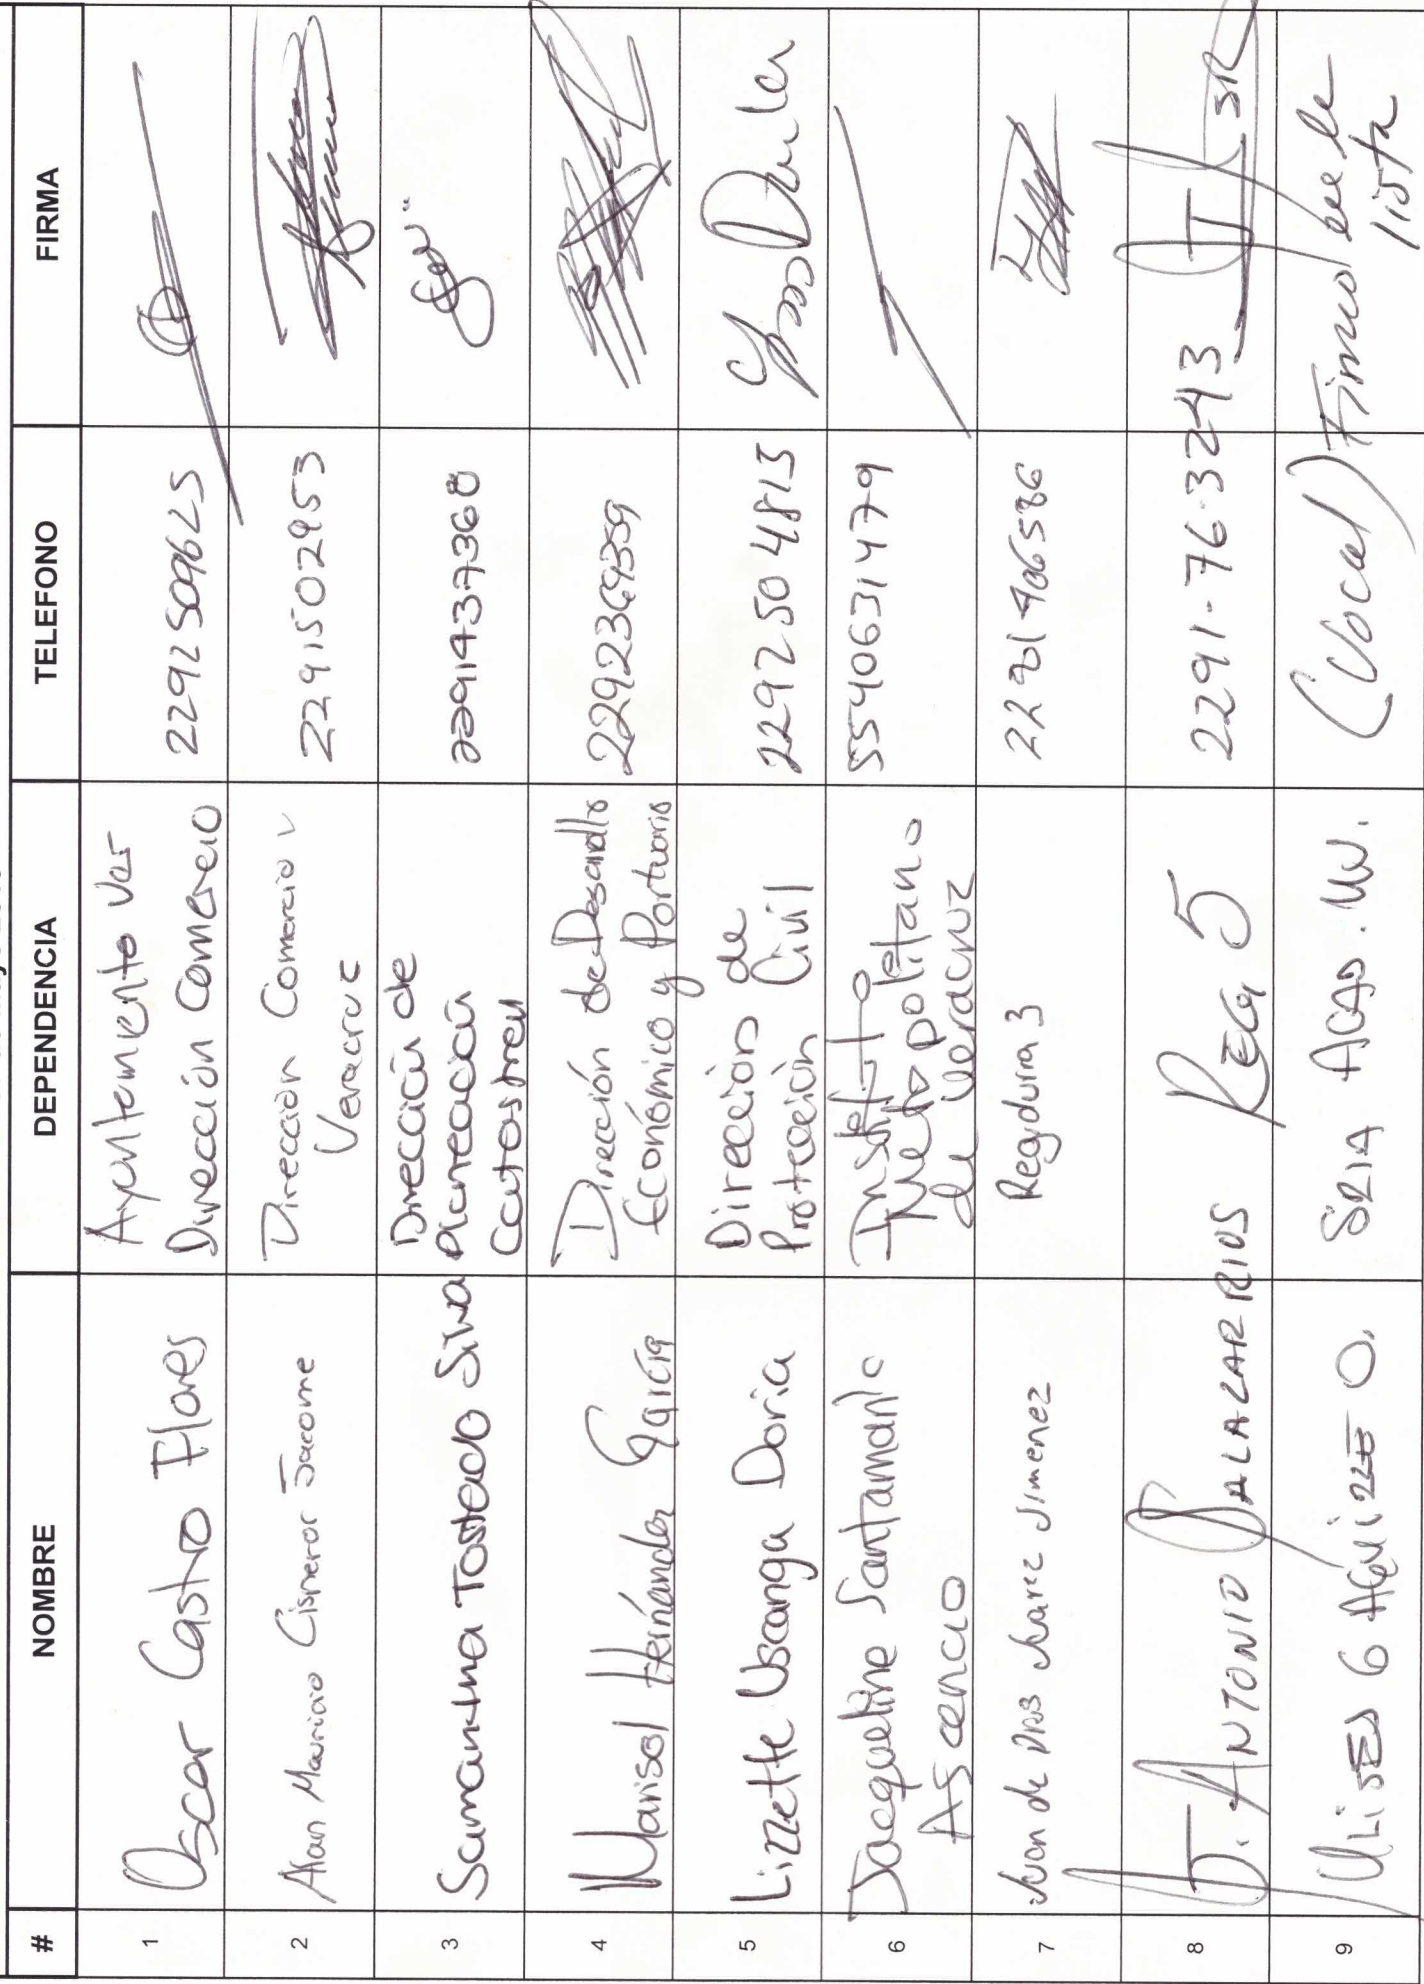 # NOMBRE DEPENDENCIA TELEFONO FIRMA
1 Oscar Castro Flores Ayuntamiento Ver
Dirección Comercio 2292509625
2 Alan Mauricio Cisneros Jacome Dirección Comercio
Veracruz 2291502953
3 Samantha Tostado Silva Dirección de
Planeación
Catastral 2291437368
4 Marisol Hernández García Dirección de Desarrollo
Económico y Portuario 2292369359
5 Lizzette Uscanga Doria Dirección de
Protección Civil 2292504815
6 Jacqueline Santamaría
Ascencio Instituto
Metropolitano
de Veracruz 5540631479
7 Juan de Dios Juarez Jimenez Regiduria 3
8 J. ANTONIO SALAZAR RIOS REG 5 2291-763243
9 ULISES G AGUIRRE O. SRIA ACAD. UV. (Vocal) Firmo
lista